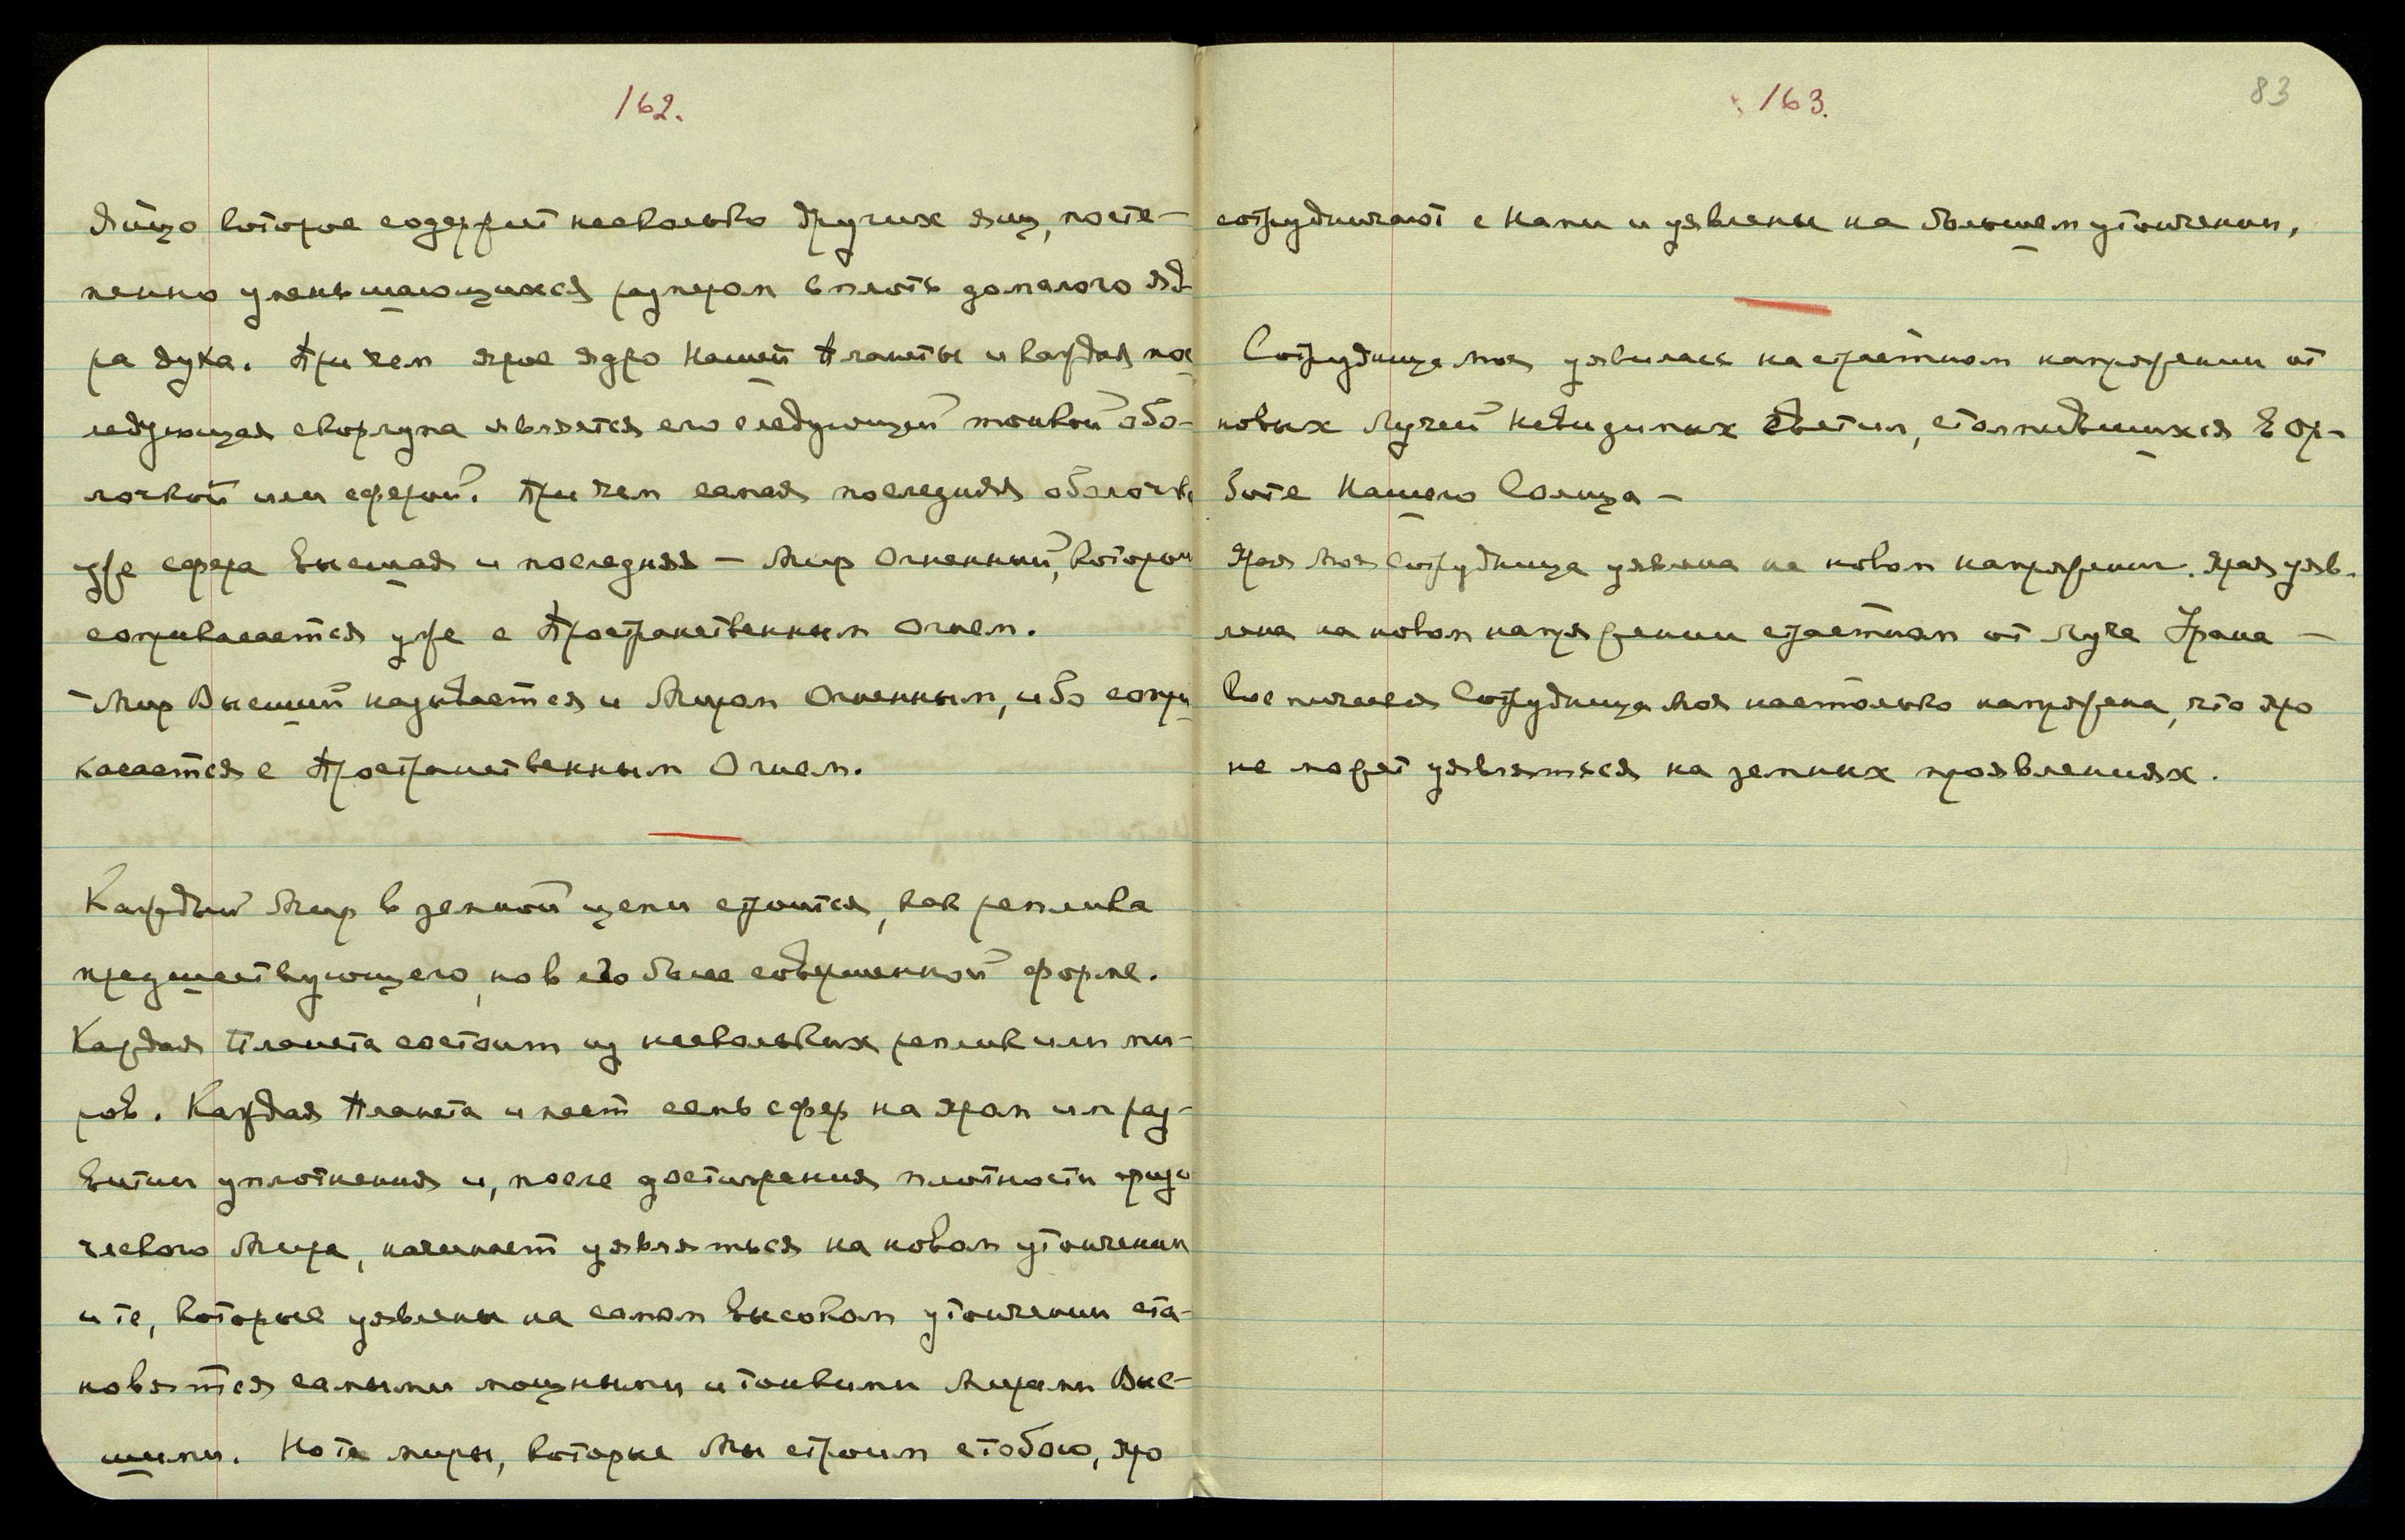 162.
Яйцо которое содержит несколько других яиц, посте-
пенно уменьшающихся размером вплоть до малого яд-
ра духа. При чем ярое ядро Нашей Планеты и каждая пос
ледующая скорлупа является его следующей тонкой обо-
лочкой или сферой. При чем самая последняя оболочка
уже сфера высшая и последняя — Мир Огненный, который
соприкасается уже с Пространственным Огнем.
— Мир Высший называется и Миром Огненным, ибо сопри
касается с Пространственным Огнем.
Каждый Мир в земной цепи строится, как реплика
предшествующего, но в его более совершенной форме.
Каждая Планета состоит из нескольких реплик или ми-
ров. Каждая Планета имеет семь сфер на яром им раз-
витии уплотнения и, после достижения плотности физи
ческого Мира, начинает уявляться на новом утончении
и те, которые уявлены на самом высоком утончении ста-
новятся самыми мощными и тонкими Мирами Выс-
шими. Но те миры, которые Мы строим с тобою, яро
163.
83
сотрудничают с Нами и уявлены на большем утончении,
Сотрудница Моя уявилась на страстном напряжении от
новых Лучей Невидимых Светил, столпившихся в ор-
бите Нашего Солнца —
Ярая Моя Сотрудница уявлена на новом напряжении. Ярая уяв-
лена на новом напряжении страстном от Луча Урана —
Космическая Сотрудница Моя настолько напряжена, что яро
не может уявляться на земных проявлениях.